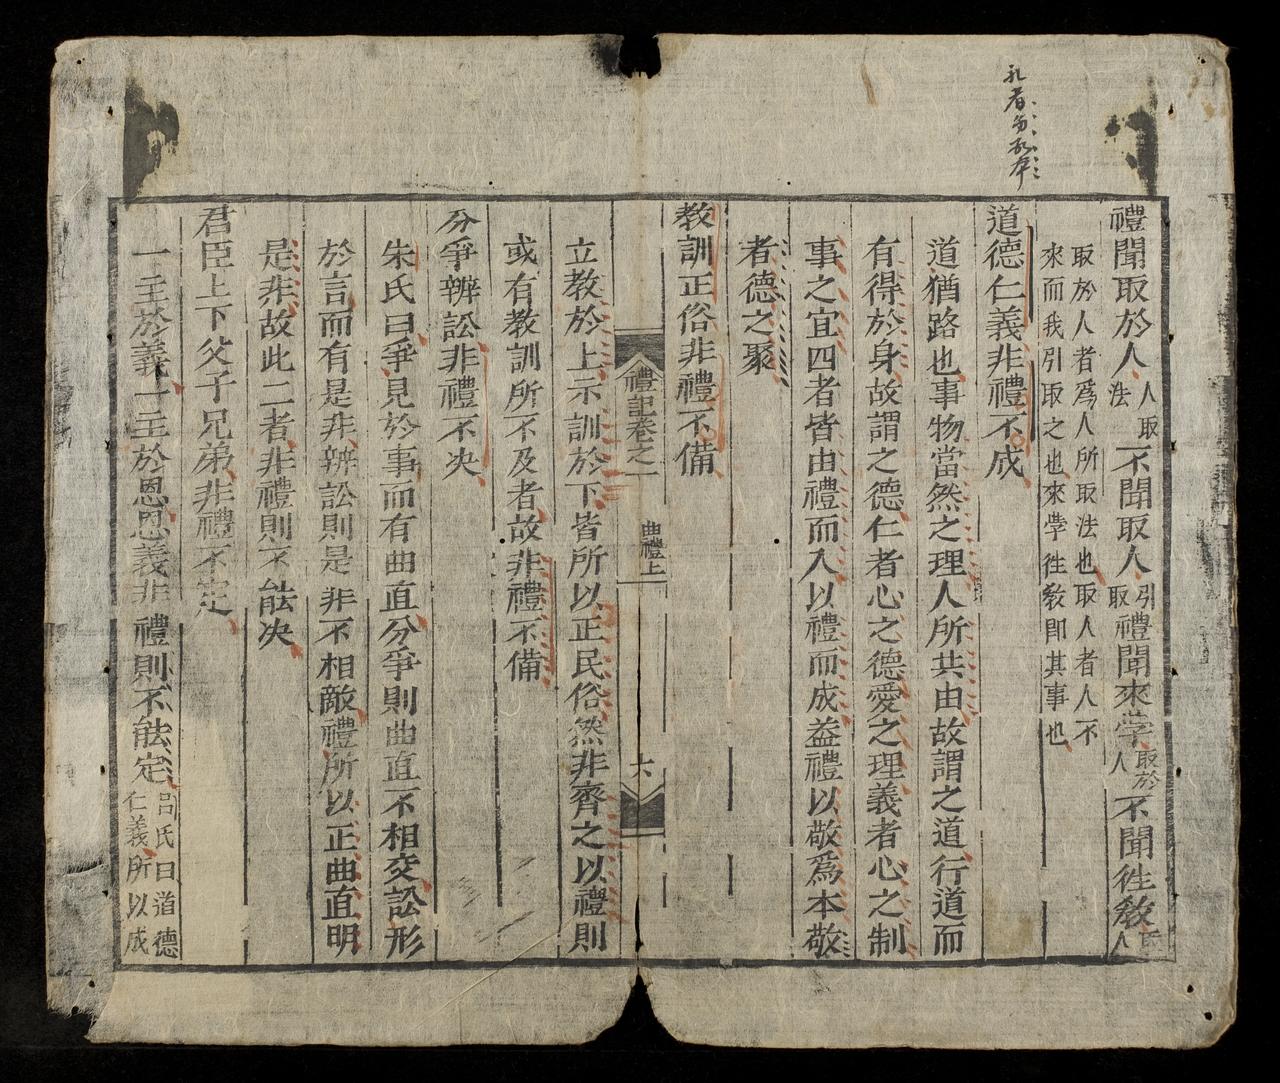 禮聞取於人人取法不聞取人引取禮聞來學取於人不聞往敎取人
取於人者爲人所取法也取人者人不
來而我引取之也來學往敎即其事也
道德仁義非禮不成
道猶路也事物當然之理人所共由故謂之道行道而
有得於身故謂之德仁者心之德愛之理義者心之制
事之宜四者皆由禮而入以禮而成益禮以敬爲本敬
者德之聚
敎訓正俗非禮不備
禮記卷之一 曲禮上 六
立敎於上示訓於下皆所以正民俗然非齊之以禮則
或有敎訓所不及者故非禮不備
分爭辨訟非禮不决
朱氏曰爭見於事而有曲直分爭則曲直不相交訟形
於言而有是非辨訟則是非不相敵禮所以正曲直明
是非故此二者非禮則不能决
君臣上下父子兄弟非禮不定
一主於義一主於恩恩義非禮則不能定呂氏曰道德
仁義所以成